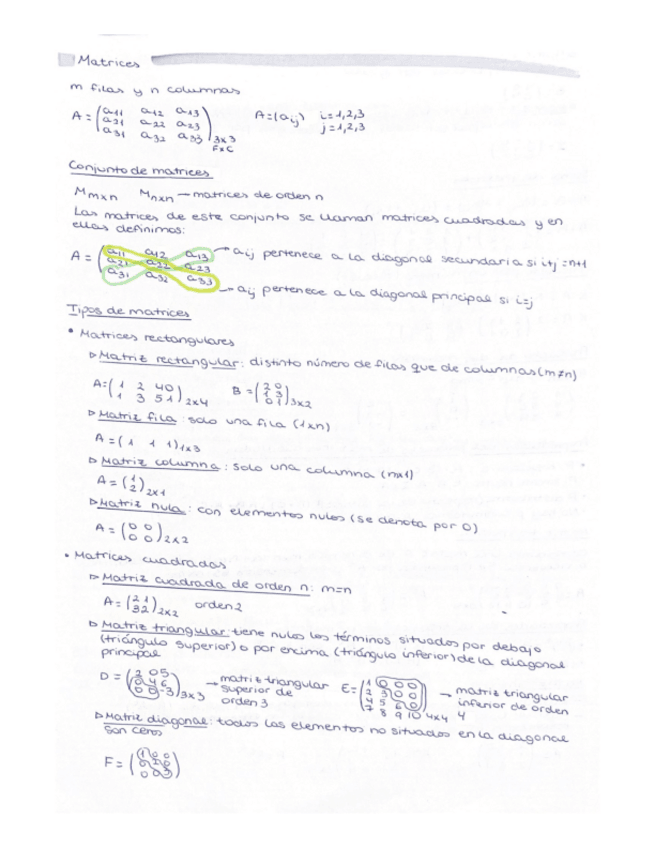 Matrices
m filas y n columnas
A = (a11 a12 a13 A = (aij) i = 1,2,3
a21 a22 a23 j = 1,2,3
a31 a32 a33) 3x3
FxC
Conjunto de matrices
Mmxn Mnxn — matrices de orden n
Las matrices de este conjunto se llaman matrices cuadradas y en
ellas definimos:
A = (a11 a12 a13 → aij pertenece a la diagonal secundaria si i+j = n+1
a21 a22 a23
a31 a32 a33) → aij pertenece a la diagonal principal si i=j
Tipos de matrices
• Matrices rectangulares
▷ Matriz rectangular: distinto número de filas que de columnas (m≠n)
A = (1 2 4 0 B = (2 0
1 3 5 1) 2x4 1 3
0 1) 3x2
▷ Matriz fila: solo una fila (1xn)
A = (1 1 1) 1x3
▷ Matriz columna: solo una columna (nx1)
A = (1
2) 2x1
▷ Matriz nula: con elementos nulos (se denota por 0)
A = (0 0
0 0) 2x2
• Matrices cuadradas
▷ Matriz cuadrada de orden n: m=n
A = (2 1 orden 2
3 2) 2x2
▷ Matriz triangular: tiene nulos los términos situados por debajo
(triángulo superior) o por encima (triángulo inferior) de la diagonal
principal
D = (2 0 5 → matriz triangular E = (1 0 0 0 → matriz triangular
0 4 6 superior de 2 3 0 0 inferior de orden
0 0 -3) 3x3 orden 3 4 5 6 0 4
7 8 9 10) 4x4
▷ Matriz diagonal: todos los elementos no situados en la diagonal
son ceros
F = (1 0 0
0 0
0 0 3)